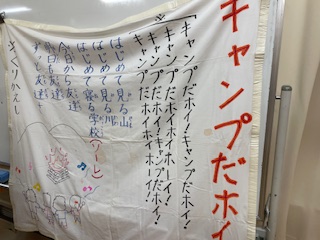 キャンプだホイ
「キャンプだホイ!キャンプだホイ!
キャンプだホイホイホーイ!
キャンプだホイ!キャンプだホイ!
キャンプだホイホイホーイ!」
はじめて見る山
はじめて見る川
はじめて寝る学校(ソーレ)
今日から友達
明日も友達
ずっと友達!
※くりかえし